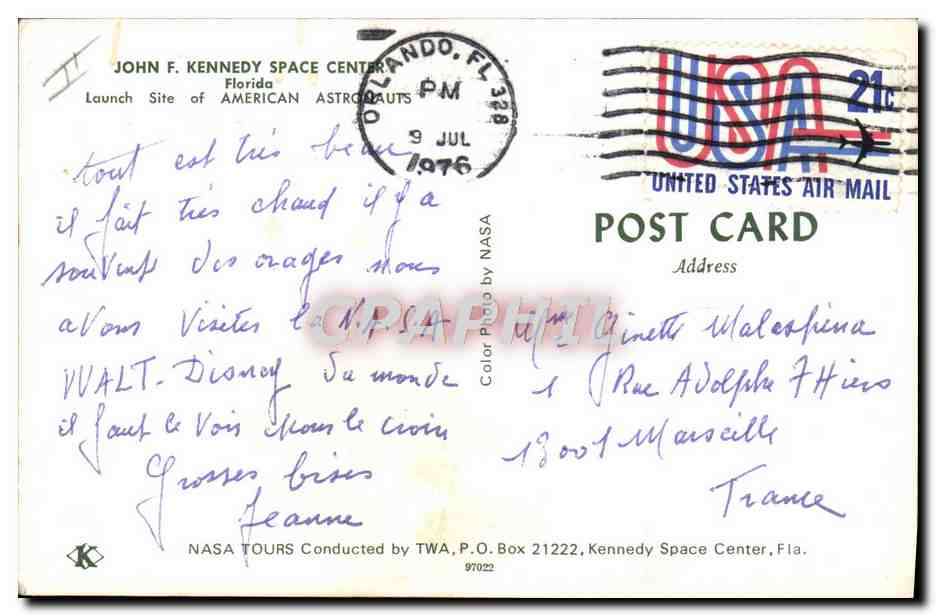 II
JOHN F. KENNEDY SPACE CENTER
Florida
Launch Site of AMERICAN ASTRONAUTS
ORLANDO, FL 328
PM
9 JUL
1976
21c
USA
UNITED STATES AIR MAIL
POST CARD
Address
tout est très beau
il fait très chaud il y a
souvent des orages nous
avons visites la N.A.S.A
WALT-Disney du monde
il faut le voir pour le croire
Grosses bises
Jeanne
Color Photo by NASA
CPAPHIL
Mme Ginette Malaspina
1 Rue Adolphe Thiers
13001 Marseille
France
K
NASA TOURS Conducted by TWA, P.O. Box 21222, Kennedy Space Center, Fla.
97022